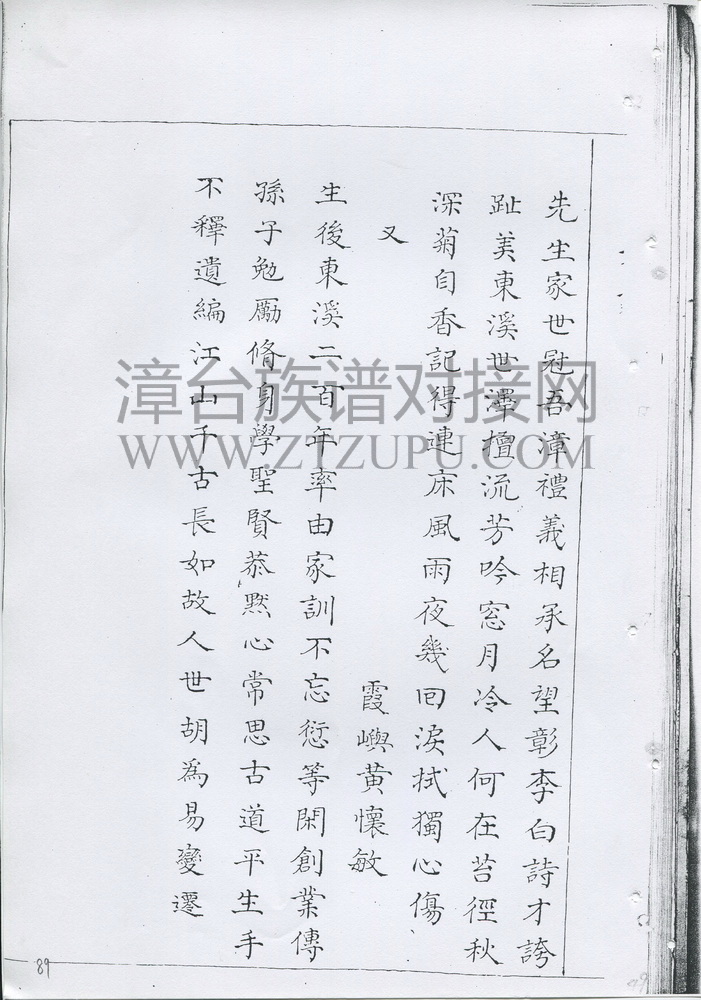 先生家世冠吾漳禮義相承名望彰李白詩才誇
趾美東溪世澤擅流芳吟窓月冷人何在苔徑秋
深菊自香記得連床風雨夜幾回淚拭獨心傷
又
霞嶼黄懷敏
生後東溪二百年率由家訓不忘愆等閑創業傳
孫子勉勵脩身學聖賢恭黙心常思古道平生手
不釋遺編江山千古長如故人世胡為易變遷
漳台族谱对接网
WWW.ZTZUPU.COM
89